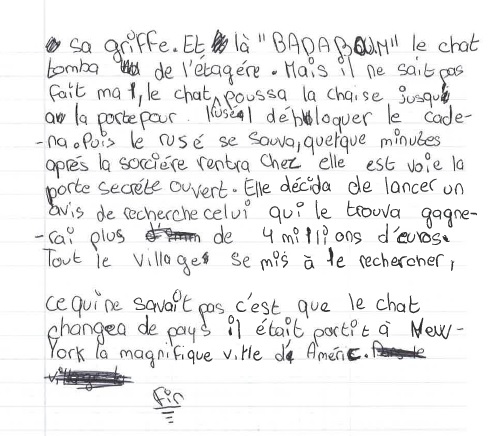 sa griffe. Et là "BADABOUM" le chat
tomba de l'étagére. Mais il ne sait pas
fait mal, le chat rusé poussa la chaise jusqu'
au la porte pour débloquer le cade-
-na. Puis le rusé se sauva, quelque minutes
aprés la sorciére rentra chez elle est voie la
porte secréte ouvert. Elle décida de lancer un
avis de recherche celui qui le trouva gagne-
-rai plus de 4 millions d'euros.
Tout le village se mis à le rechercher,
ce qui ne savaît pas c'est que le chat
changea de pays il était partit à New-
York la magnifique ville d'Améric.
Fin